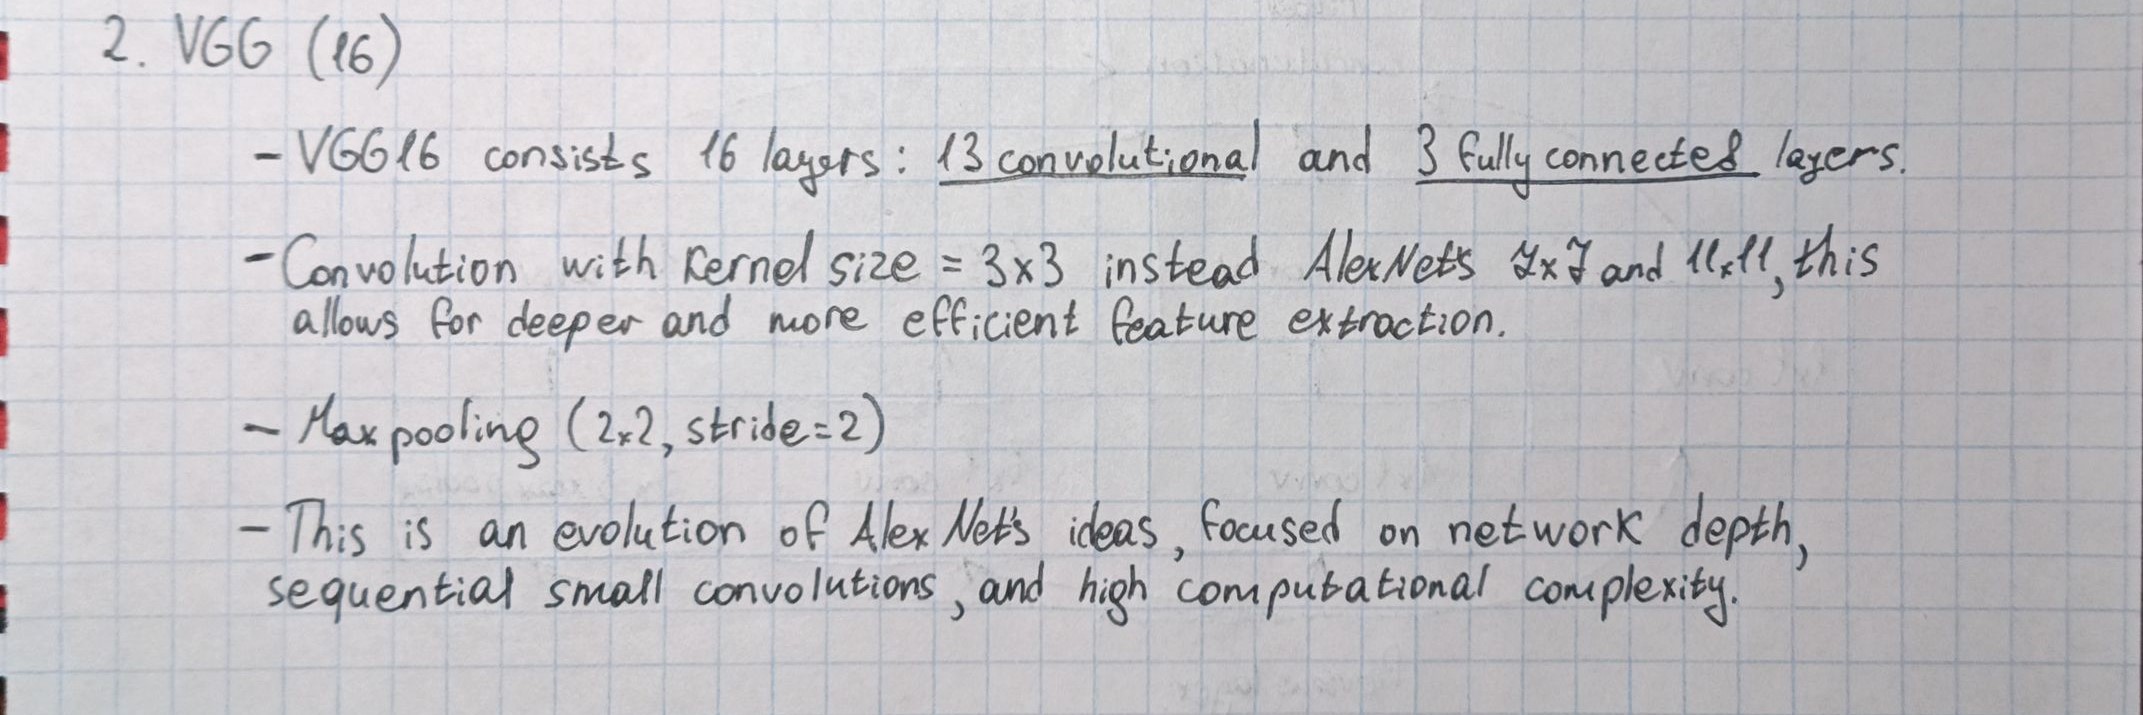 2. VGG (16)
- VGG16 consists 16 layers: 13 convolutional and 3 fully connected layers.
- Convolution with kernel size = 3x3 instead AlexNet's 7x7 and 11x11, this
allows for deeper and more efficient feature extraction.
- Max pooling (2x2, stride=2)
- This is an evolution of AlexNet's ideas, focused on network depth,
sequential small convolutions, and high computational complexity.